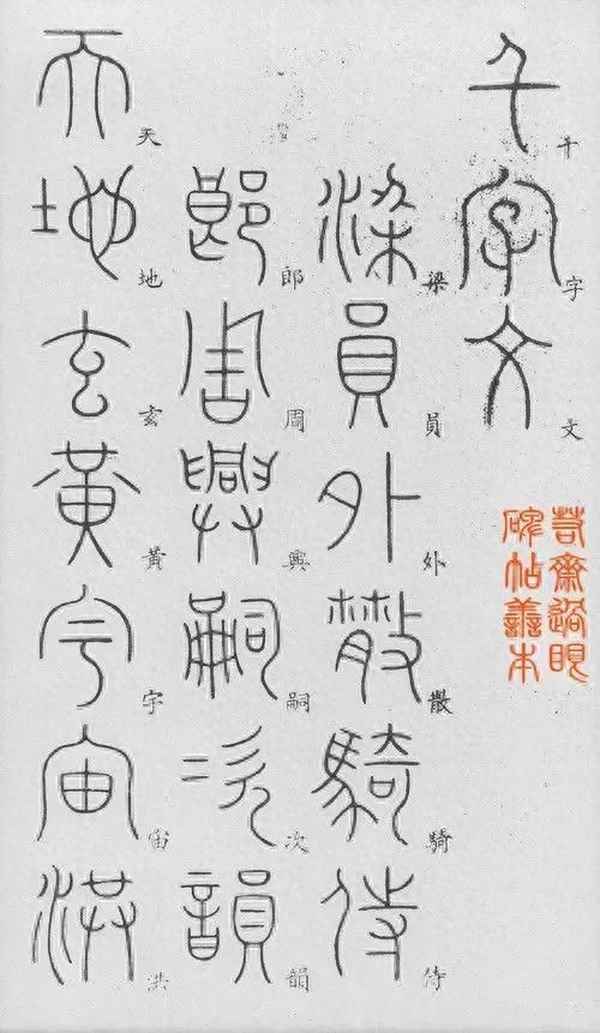 千字文
千字文
齋過眼
碑帖善本
梁員外散騎侍
梁員外散騎侍
郎周興嗣次韻
郎周興嗣次韻
天地玄黃宇宙洪
天地玄黃宇宙洪